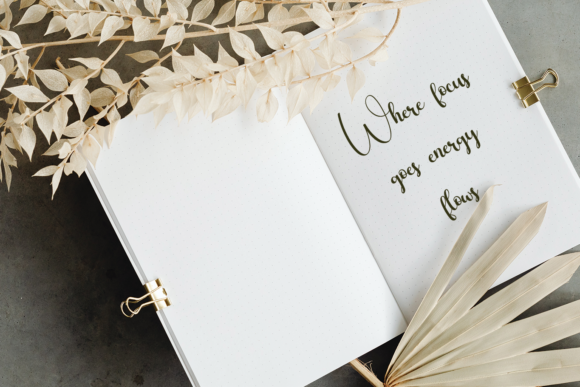 Where focus
goes energy
flows